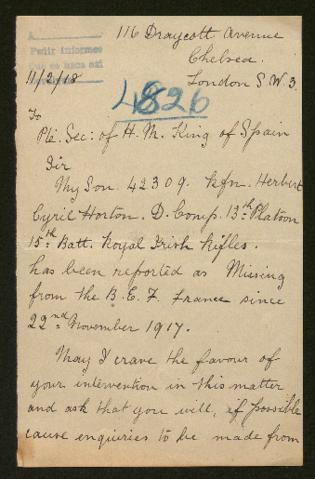 116 Draycott Avenue
Chelsea.
London S.W.3.
A
Pedir informes
11/2/18
4826
To
Pte. Sec: of H. M. King of Spain
Sir
My Son. 42309. Rfn. Herbert
Cyril Horton. D. Comp. 13th Platoon
15th Batt. Royal Irish Rifles.
has been reported as Missing
from the B. E. F. France since
22nd November 1917.
May I crave the favour of
your intervention in this matter
and ask that you will, if possible
cause enquiries to be made from